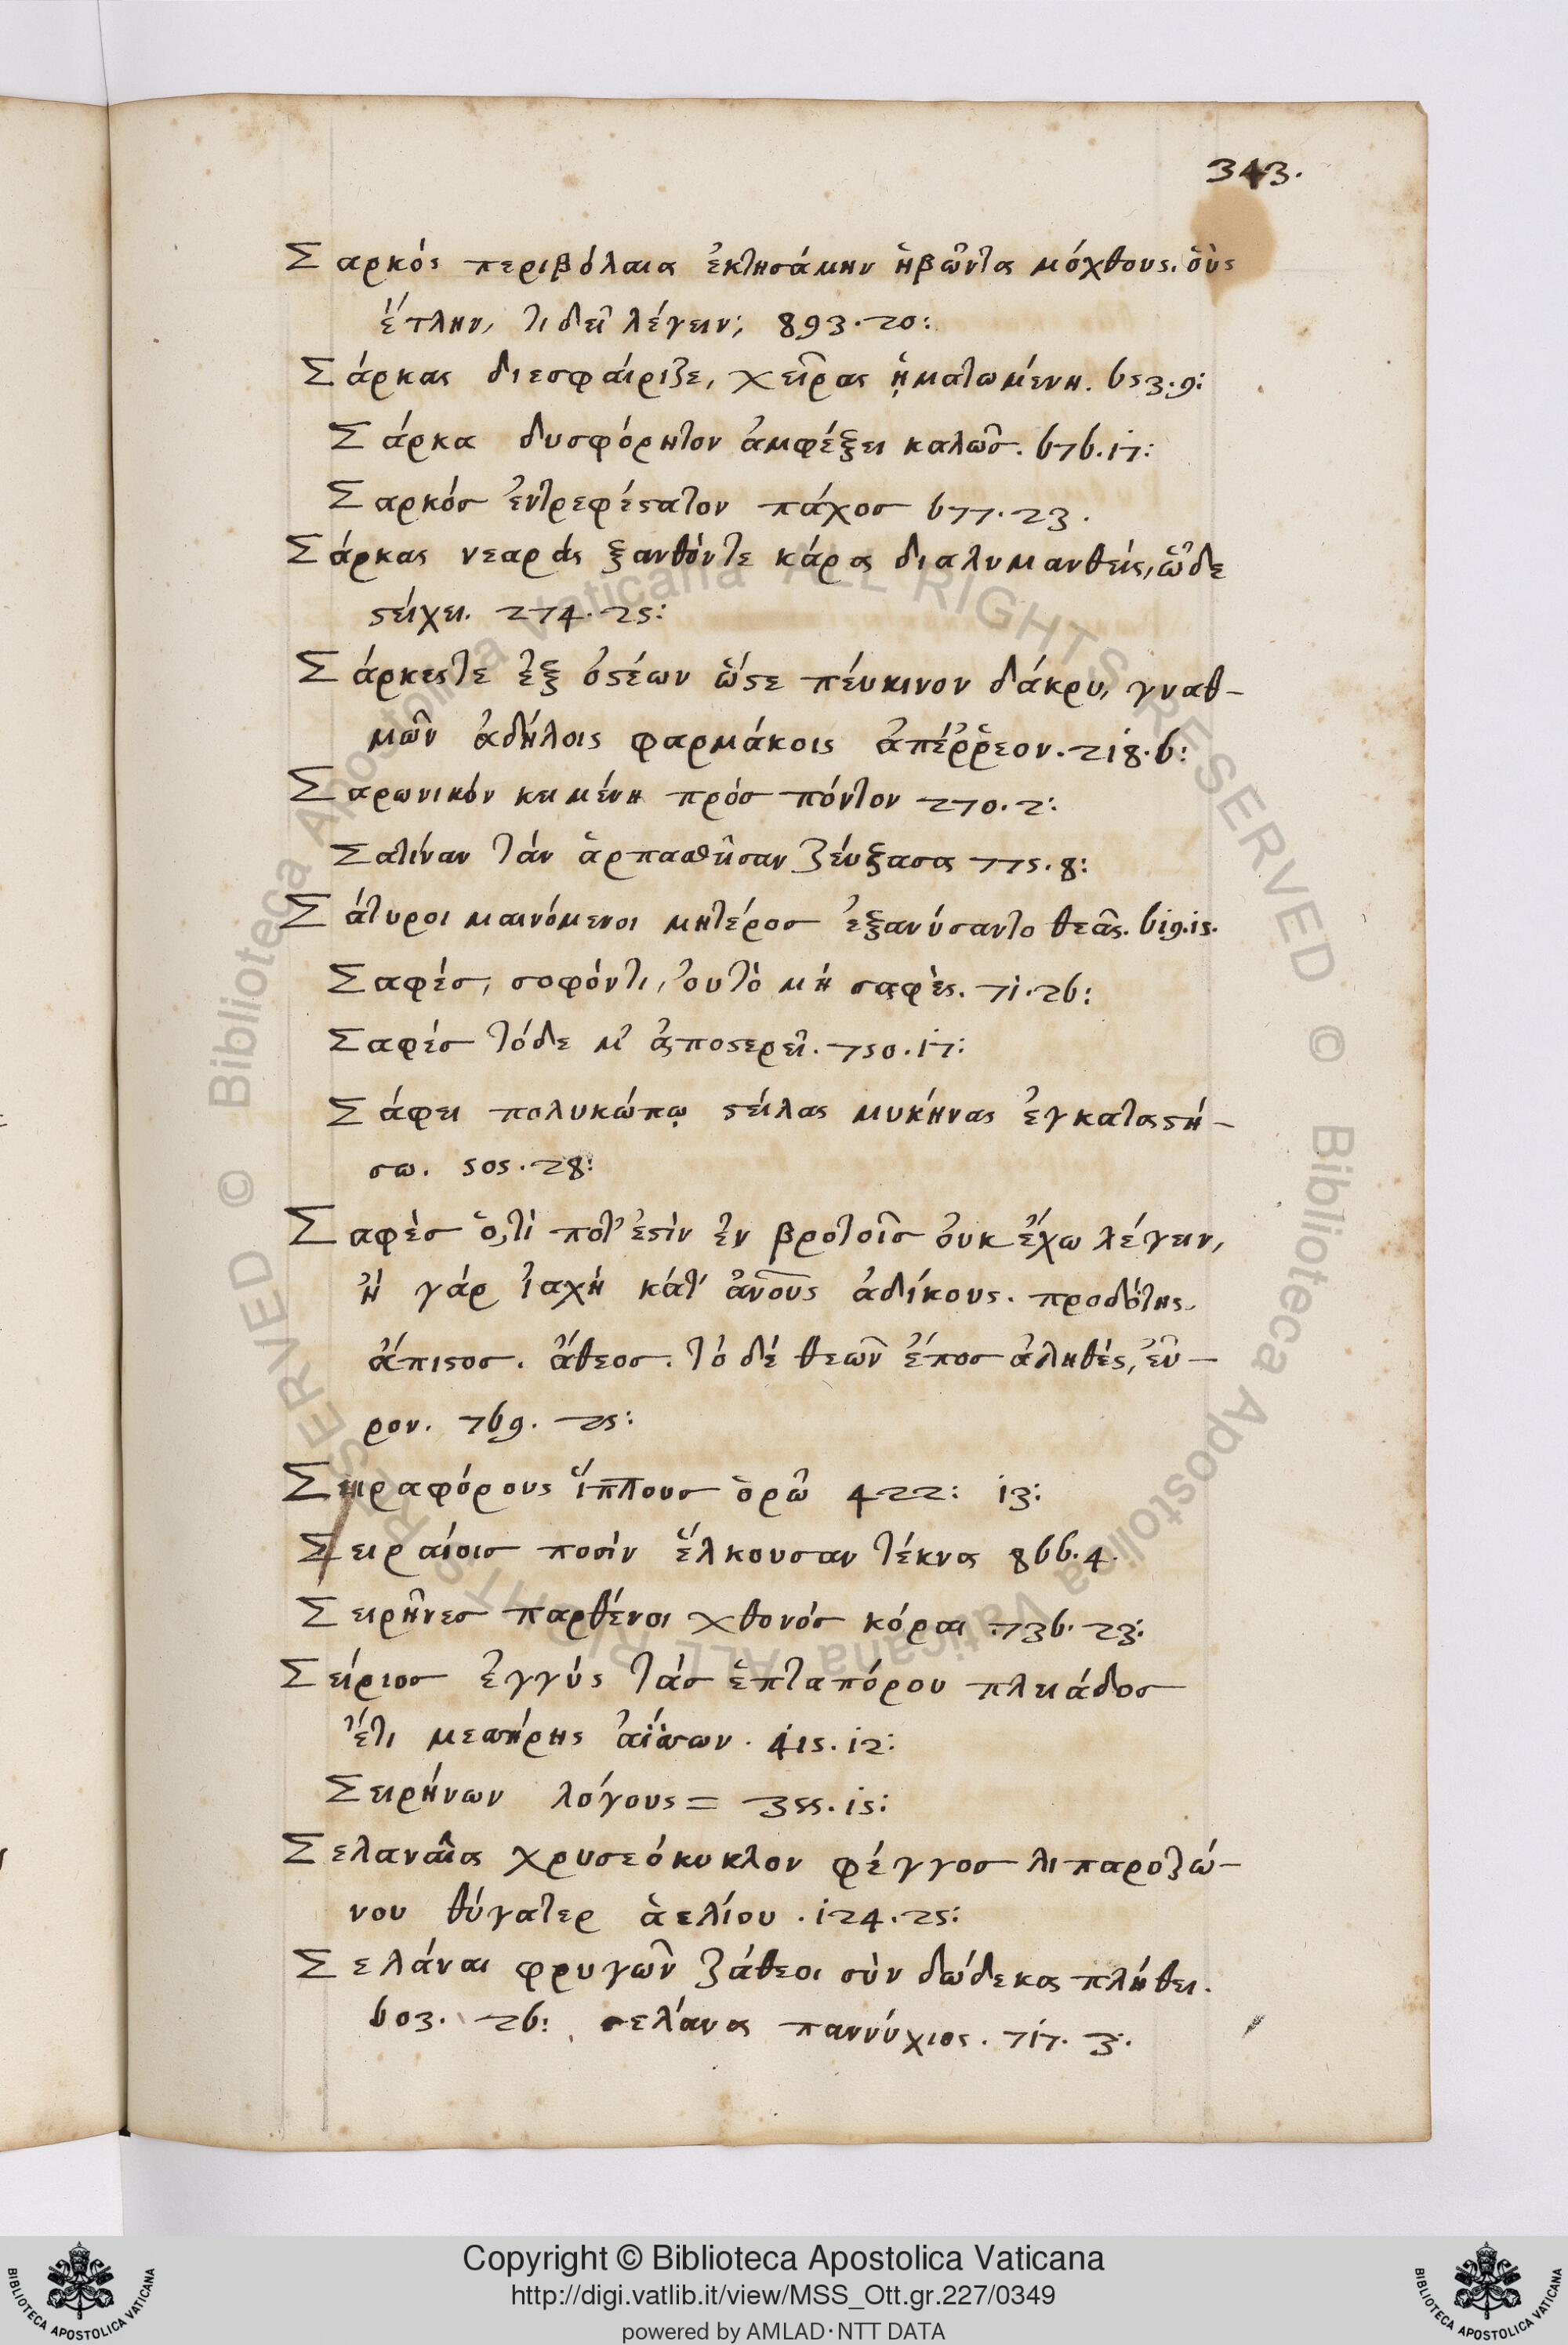 343.
Σαρκός περιβόλαια ἐκτησάμην ἡβῶντα μόχθους. οὓς
ἔτλην, τι δεῖ λέγειν; 893.20:
Σάρκας διεσφαίριζε, χεῖρας ᾑματωμένη. 653.9:
Σάρκα δυσφόρητον ἀμφέξει καλῶσ. 676.17:
Σαρκόσ ἐντρεφέςατον πάχοσ 677.23.
Σάρκας νεαράς ξανθόντε κάρα διαλυμανθείς, ὧδε
ςείχει. 274.25:
Σάρκεςτε ἐξ ὀςέων ὥςε πέυκινον δάκρυ, γναθ-
μῶν ἀδήλοις φαρμάκοις ἀπέῤῥεον. 218.6:
Σαρωνικόν κειμένη πρόσ πόντον 270.2:
Σατίναν τάν ἁρπασθεῖσαν ζέυξασα 775.8:
Σάτυροι μαινόμενοι μητέροσ ἐξανύσαντο θεᾶς. 619.15.
Σαφέσ, σοφόντι, ουτὸ μή σαφὲς. 71.26:
Σαφέσ τόδε μ' ἀποςερεῖ. 750.17:
Σάφει πολυκώπῳ ςείλας μυκήνας ἐγκαταςή-
σω. 505.28:
Σαφὲσ ὅ,τὶ ποτ' ἐςὶν ἐν βροτοῖσ ὀυκ ἔχω λέγειν,
ἠ γάρ ἰαχή κάτ' ἀνους ἀδίκους. προδότης.
ἄπιςοσ. ἄθεοσ. τό δέ θεῶν ἔποσ ἀληθές, εὗ-
ρον. 769. 25:
Σειραφόρους ἵππουσ ὁρῶ 422: 13:
Σειραίοισ ποσὶν ἕλκουσαν τέκνα 866.4.
Σειρῆνεσ παρθένοι χθονόσ κόραι .736.23:
Σείριοσ ἐγγύς τάσ ἑπταπόρου πλειάδοσ
ἔτι μεσήρης ἀΐσσων. 415.12:
Σειρήνων λόγους = 355.15:
Σελαναῖα χρυσεόκυκλον φέγγοσ λιπαροζώ-
νου θύγατερ ἁελίου. 124.25:
Σελάναι φρυγῶν ζάθεοι σὺν δώδεκα πλήθει.
603. 26: σελάνα παννύχιος. 717. 3.
Copyright © Biblioteca Apostolica Vaticana
http://digi.vatlib.it/view/MSS_Ott.gr.227/0349
powered by AMLAD·NTT DATA